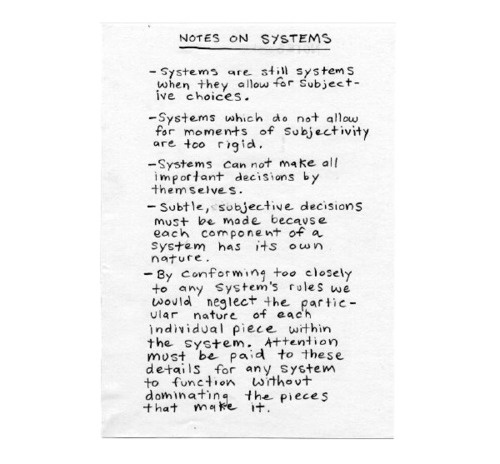 NOTES ON SYSTEMS
- Systems are still systems
when they allow for subject-
ive choices.
- Systems which do not allow
for moments of subjectivity
are too rigid.
- Systems can not make all
important decisions by
themselves.
- Subtle, subjective decisions
must be made because
each component of a
system has its own
nature.
- By conforming too closely
to any system's rules we
would neglect the partic-
ular nature of each
individual piece within
the system. Attention
must be paid to these
details for any system
to function without
dominating the pieces
that make it.